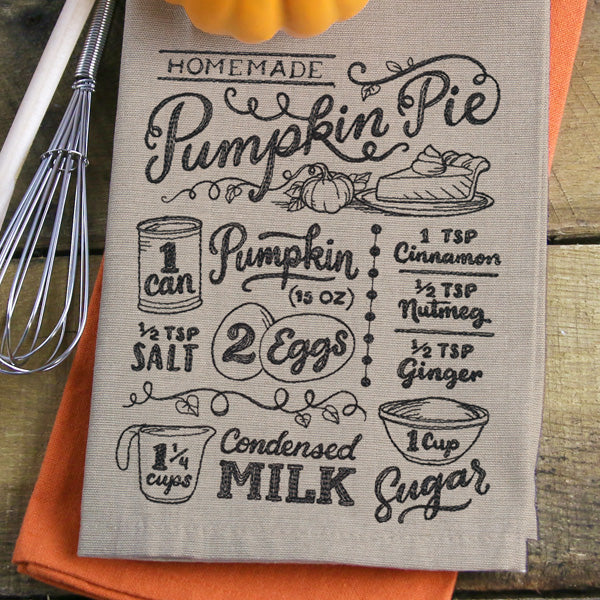 HOMEMADE
Pumpkin Pie
1
can
Pumpkin
(15 OZ)
1/2 TSP
SALT
2 Eggs
1 TSP
Cinnamon
1/2 TSP
Nutmeg
1/2 TSP
Ginger
1 1/4
cups
Condensed
MILK
1 Cup
Sugar